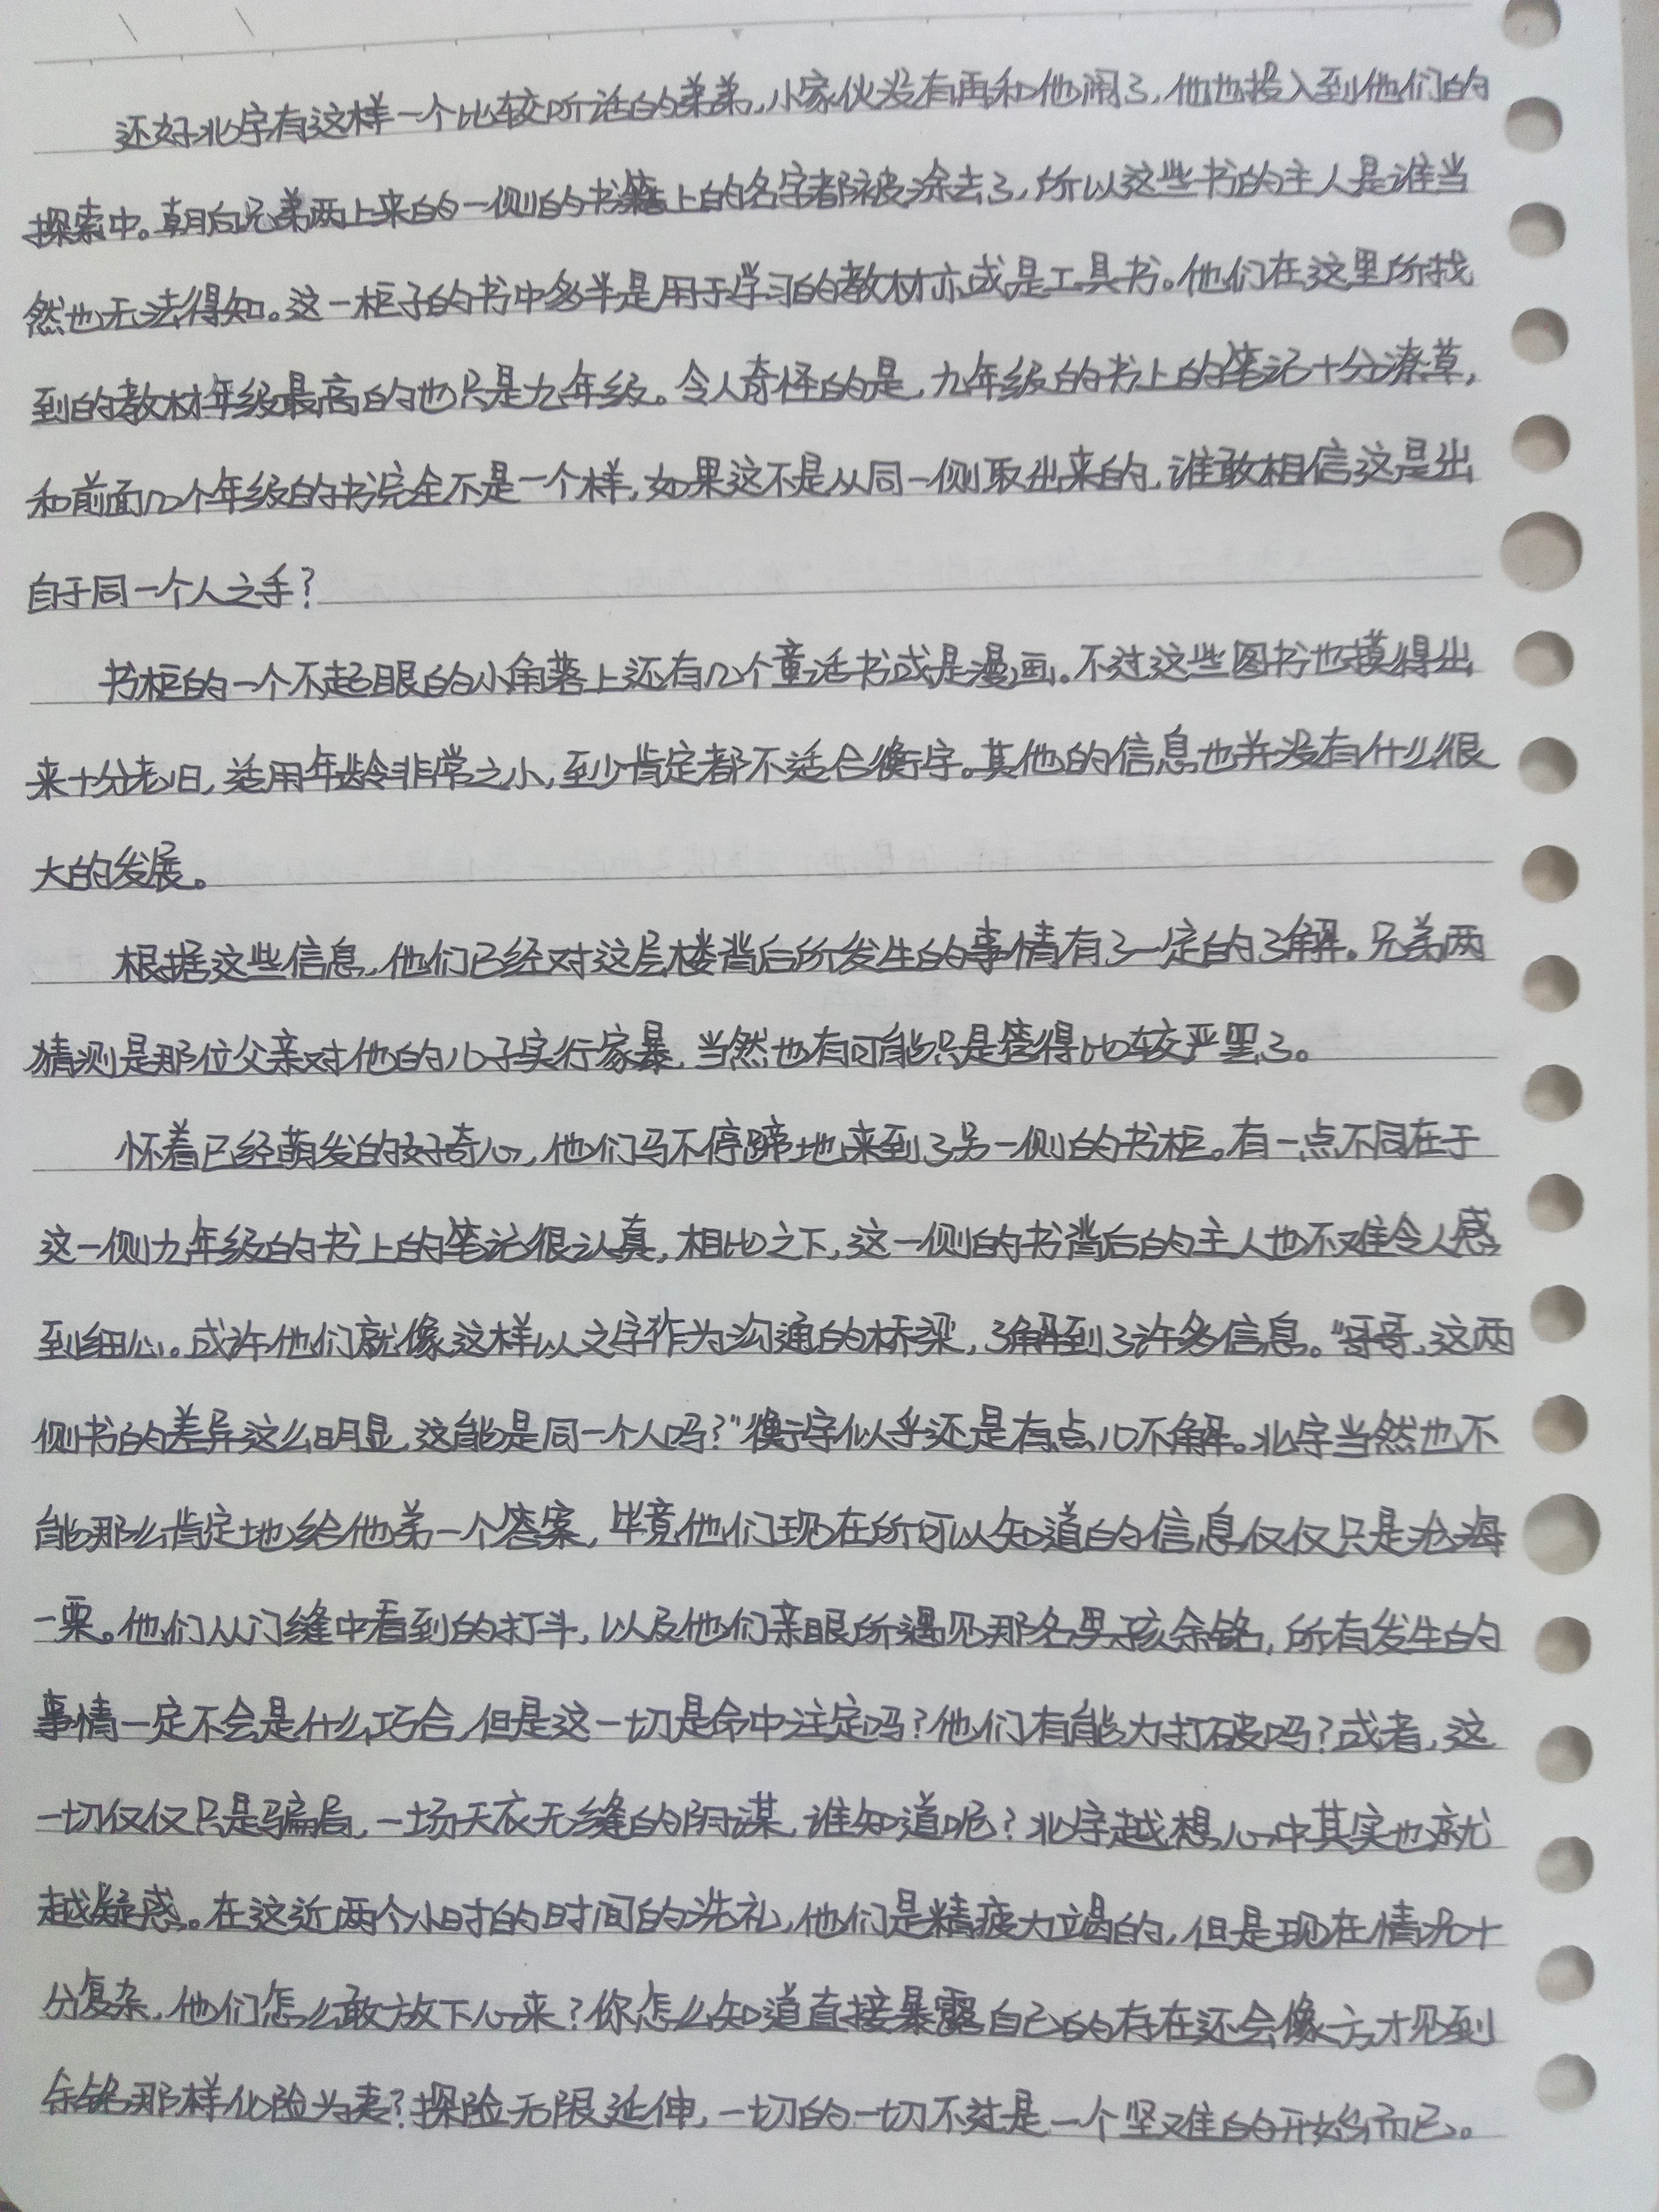 还好北宇有这样一个比较听话的弟弟,小家伙没有再和他闹了,他也投入到他们的
探索中。朝向兄弟两上来的一侧的书籍上的名字都被涂去了,所以这些书的主人是谁当
然也无法得知。这一柜子的书中多半是用于学习的教材亦或是工具书。他们在这里所找
到的教材年级最高的也只是九年级。令人奇怪的是,九年级的书上的笔记十分潦草,
和前面几个年级的书完全不是一个样,如果这不是从同一侧取出来的,谁敢相信这是出
自于同一个人之手?
书柜的一个不起眼的小角落上还有几个童话书或是漫画。不过这些图书也摸得出
来十分老旧,适用年龄非常之小,至少肯定都不适合衡宇。其他的信息也并没有什么很
大的发展。
根据这些信息,他们已经对这层楼背后所发生的事情有了一定的了解。兄弟两
猜测是那位父亲对他的儿子实行家暴,当然也有可能只是管得比较严罢了。
怀着已经萌发的好奇心,他们马不停蹄地来到了另一侧的书柜。有一点不同在于
这一侧九年级的书上的笔记很认真,相比之下,这一侧的书背后的主人也不难令人感
到细心。或许他们就像这样以文字作为沟通的桥梁,了解到了许多信息。“哥哥,这两
侧书的差异这么明显,这能是同一个人吗?”衡宇似乎还是有点儿不解。北宇当然也不
能那么肯定地给他弟一个答案,毕竟他们现在所可以知道的信息仅仅只是沧海
一粟。他们从门缝中看到的打斗,以及他们亲眼所遇见那名男孩余铭,所有发生的
事情一定不会是什么巧合,但是这一切是命中注定吗?他们有能力打破吗?或者,这
一切仅仅只是骗局,一场天衣无缝的阴谋,谁知道呢?北宇越想,心中其实也就
越疑惑。在这近两个小时的时间的洗礼,他们是精疲力竭的,但是现在情况十
分复杂,他们怎么敢放下心来?你怎么知道直接暴露自己的存在还会像方才见到
余铭那样化险为夷?探险无限延伸,一切的一切不过是一个坚难的开始而已。